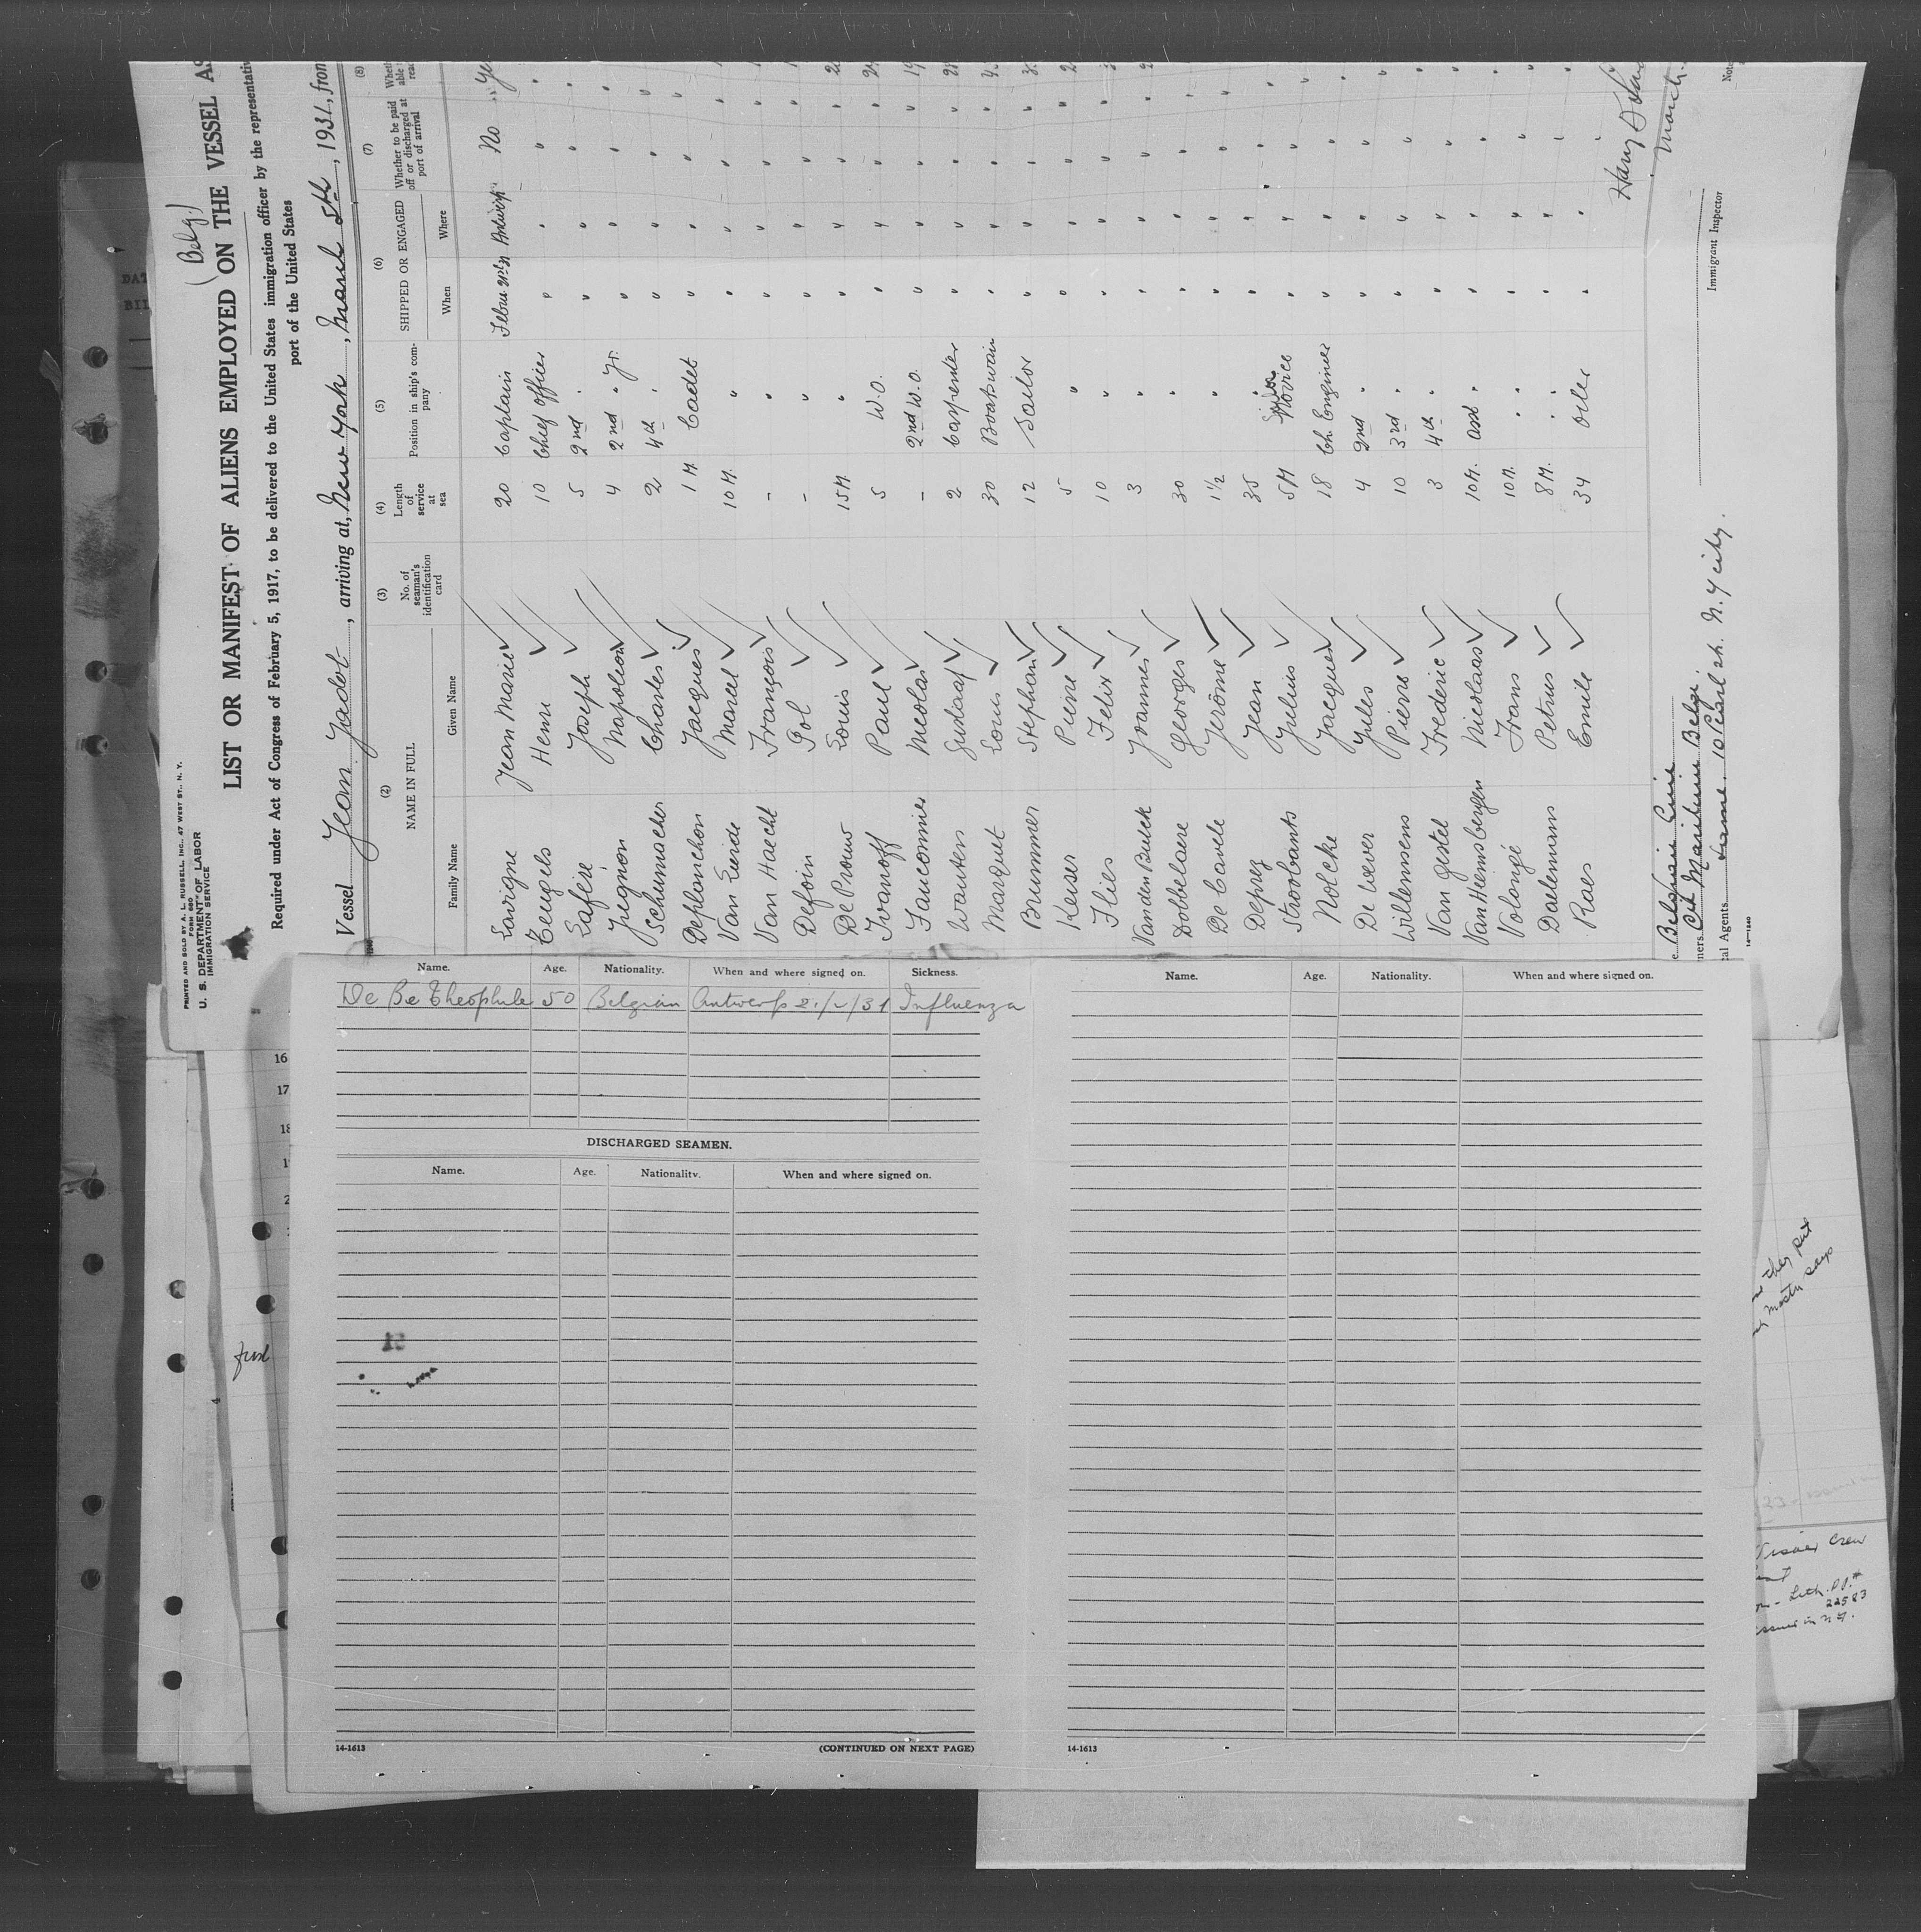 PRINTED AND SOLD BY A. L. RUSSELL, INC., 47 WEST ST., N. Y.
FORM 680
U. S. DEPARTMENT OF LABOR
IMMIGRATION SERVICE
(Belg.)
LIST OR MANIFEST OF ALIENS EMPLOYED ON THE VESSEL AS
Required under Act of Congress of February 5, 1917, to be delivered to the United States immigration officer by the representativ
port of the United States
Vessel Jean Jadot, arriving at, New York, March 5th, 1931, from
(2) (3) (4) (5) (6) (7) (8)
NAME IN FULL No. of seaman's identification card Length of service at sea Position in ship's company SHIPPED OR ENGAGED Whether to be paid off or discharged at port of arrival
Family Name Given Name When Where
Lavigne Jean Marie 20 Captain Antwerp No
Teugels Henri 10 Chief Officer "
Lafère Joseph 5 2nd "
Jugnon Napoleon 4 2nd " Jr.
Schumacher Charles 2 4th "
Deplanchon Jacques 1 M. Cadet
Van Eeide Marcel 10 M. "
Van Haecht François - "
Defoin Pol - "
De Prouw Louis 15 M. "
Ivanoff Paul 5 W.O.
Fauconnier Nicolas - 2nd W.O.
Wouters Gustaaf 2 Carpenter
Marquet Louis 30 Boatswain
Brummer Stephan 12 Sailor
Keiser Pierre 5 "
Flies Felix 10 "
Van den Bulck Joannes 3 "
Dobbelaere Georges 30 "
De Cavele Jérôme 1½ "
Deprez Jean 35
Stroobants Julius 5 M Novice
Nolcke Jacques 18 Ch. Engineer
De Wever Jules 4 2nd "
Willemsens Pierre 10 3rd "
Van Gestel Frederic 3 4th "
Van Heemsbergen Nicolaas 10 M. asst "
Volongé Frans 10 M. " "
Daelemans Petrus 8 M. " "
Raes Emile 34 Oiler
Belgian Line
ners Cie Maritime Belge
cal Agents Same. 10 Pearl st. N.Y city.
14—1240
Immigrant Inspector
Harry
March
Note
Name. Age. Nationality. When and where signed on. Sickness.
De Be Theophile 50 Belgian Antwerp 21/2/31 Influenza
DISCHARGED SEAMEN.
Name. Age. Nationality. When and where signed on.
14-1613 (CONTINUED ON NEXT PAGE)
Name. Age. Nationality. When and where signed on.
14-1613
16
17
18
crew
22583